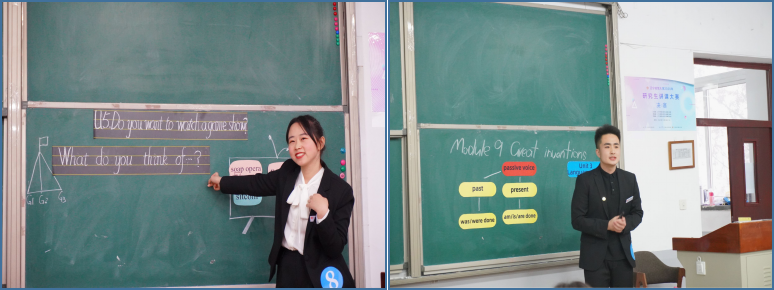 U5.Do you want to watch a game show?
What do you think of~?
soup opera
sitcoms
G1 G2 G3
8
Module 9 Great inventions
passive voice
Unit 3
past
present
was/were done
am/is/are done